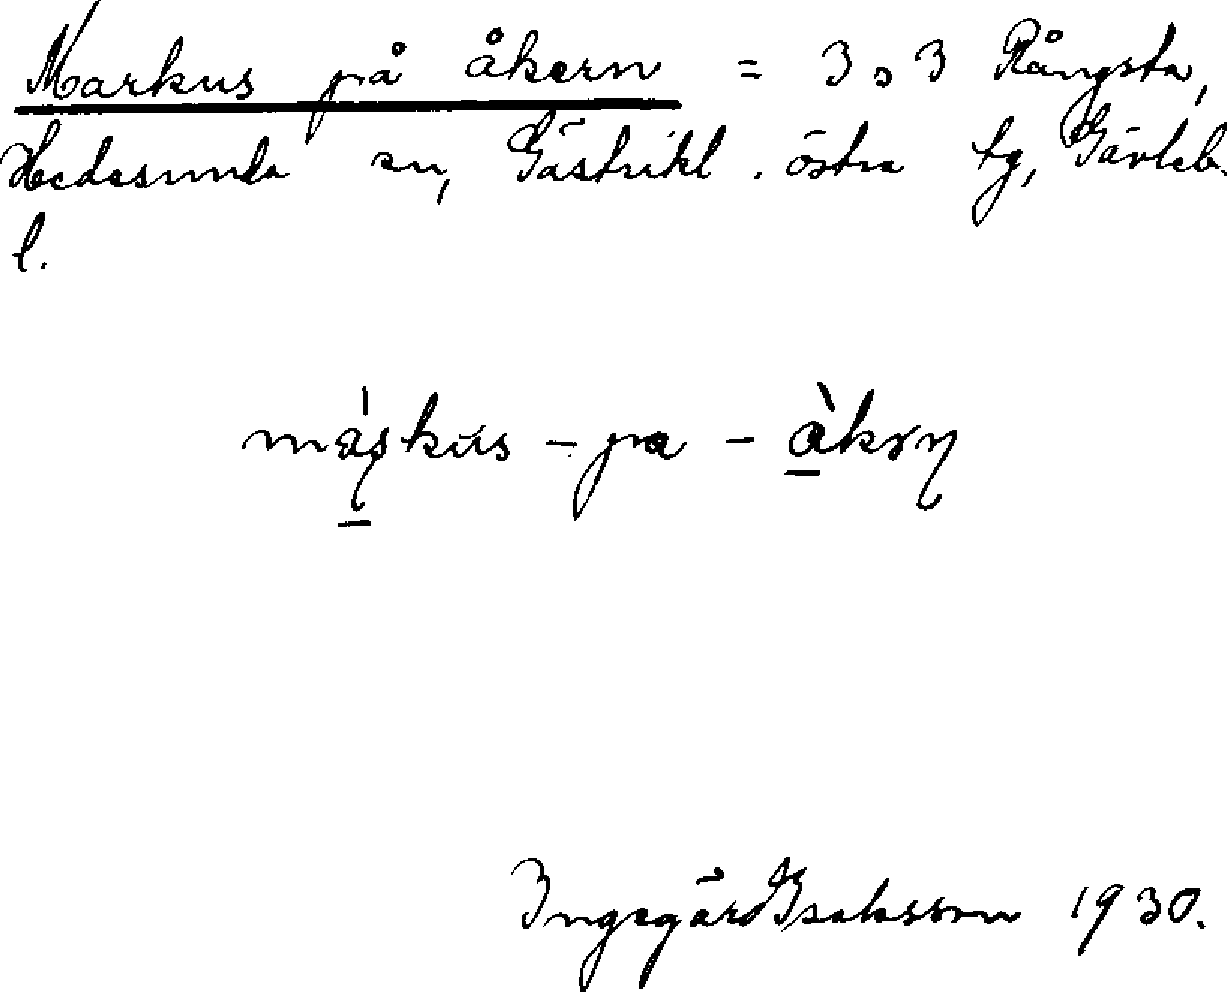 Markus på åkern = 3 o 3 Rångsta,
Hedesunda sn, Gästrikl. östra tg, Gävleb.
l.
pa
Ingegärd Isaksson 1930.